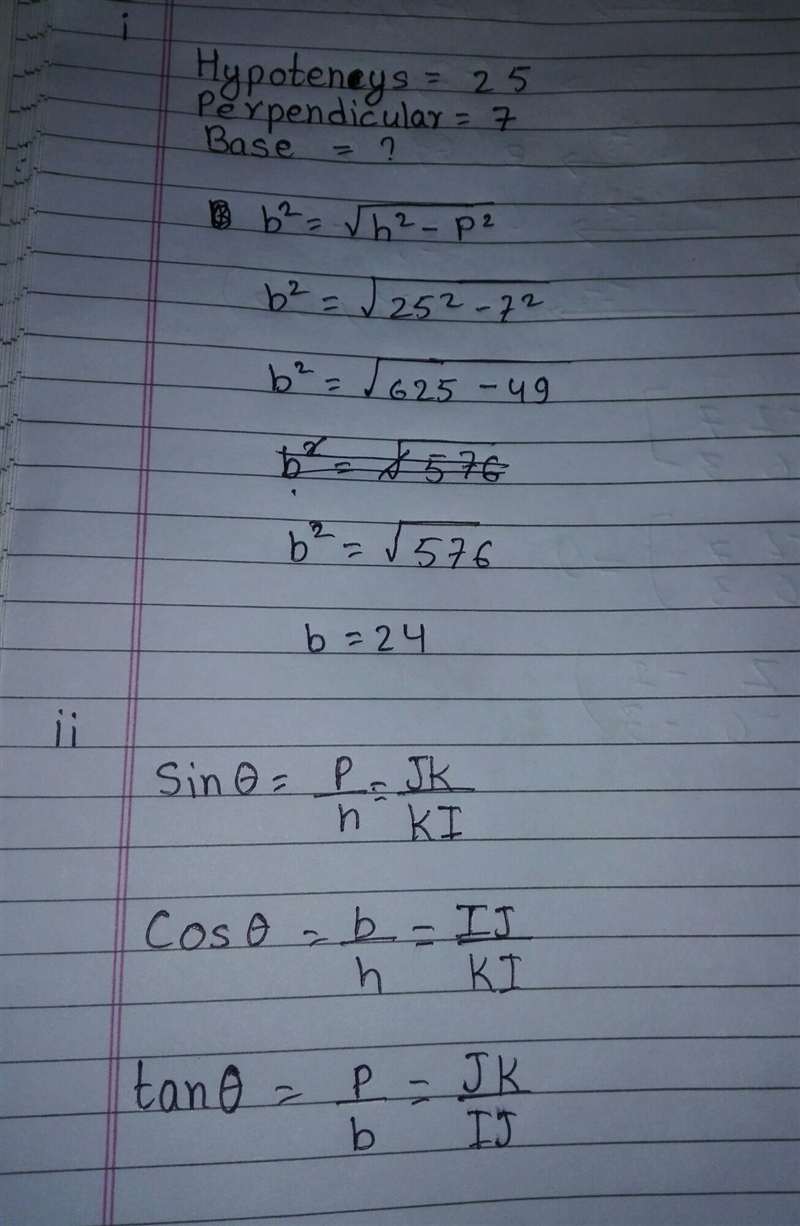 i
Hypoteneys = 25
Perpendicular = 7
Base = ?
b² = √h² - p²
b² = √25² - 7²
b² = √625 - 49
b² = √576
b² = √576
b = 24
ii
Sinθ = P/h = JK/KI
Cosθ = b/h = IJ/KI
tanθ = P/b = JK/IJ